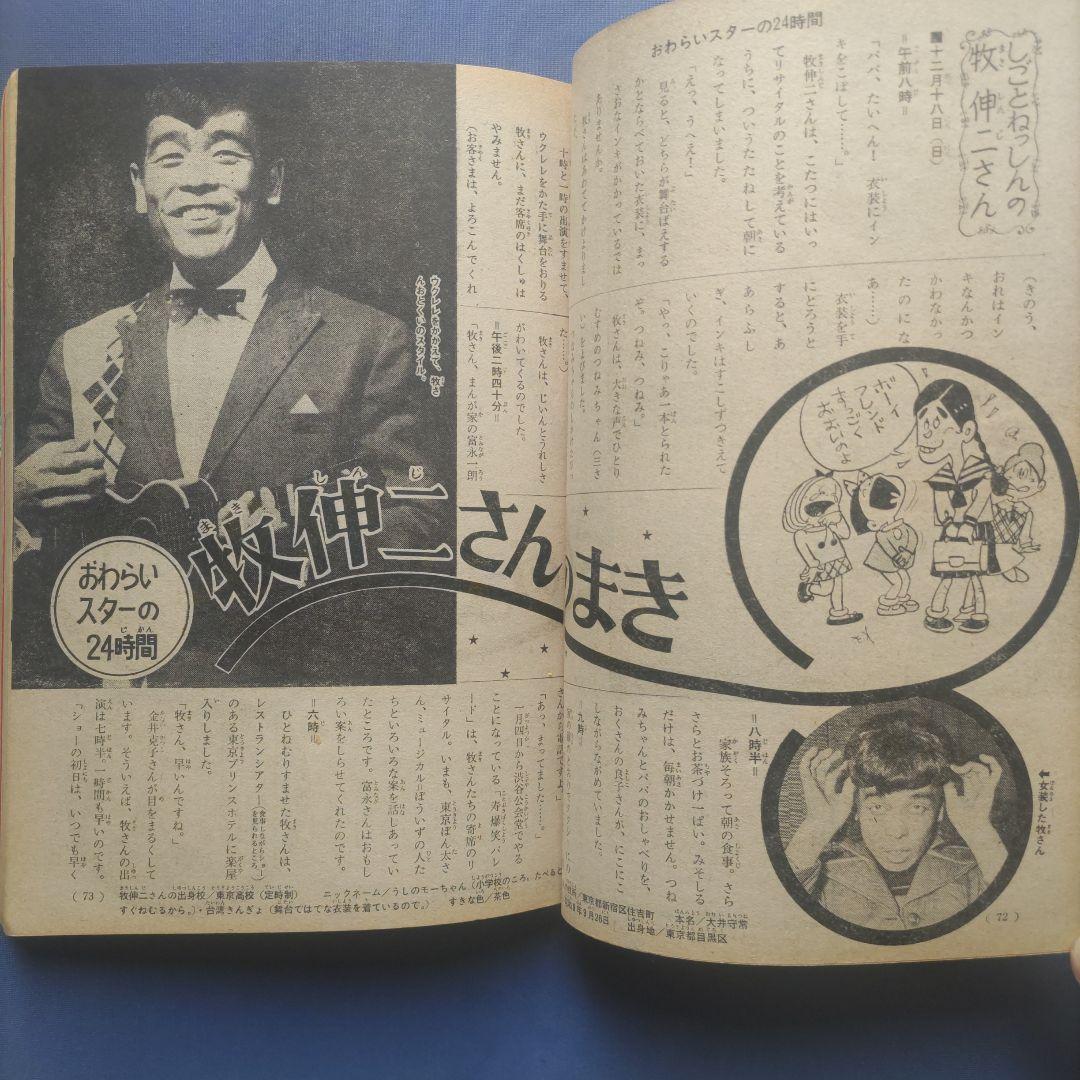 おわらいスターの24時間
しごとねっしんの
牧伸二さん
■十二月十八日(日)
=午前八時=
「パパ、たいへん! 衣装にイン
キをこぼして……。」
牧伸二さんは、こたつにはいっ
てリサイタルのことを考えている
うちに、ついうたたねして朝に
なってしまいました。
「えっ、うへえ!」
見ると、どちらが舞台ばえする
かとならべておいた衣装に、まっ
さおなインキがかかっているでは
ありませんか。
(きのう、
おれはイン
キなんかつ
かわなかっ
たのにな
あ……。)
衣装を手
にとろうと
すると、あ
あらふし
ぎ、インキはすこしずつきえて
いくのでした。
「やっ、こりゃあ一本とられた
や。つねみ、つねみ。」
牧さんは、大きな声でひとり
むすめのつねみちゃん(二さ
ボーイ
フレンド
すっごく
おおいのよ
のまき
=八時半=
家族そろって朝の食事。さら
さらとお茶づけ一ぱい。みそしる
だけは、毎朝かかせません。つね
みちゃんとパパのおしゃべりを、
おくさんの良子さんが、にこにこ
しながらながめていました。
=九時=
↑女装した牧さん
本名/大井守常
出身地/東京都目黒区
東京都新宿区住吉町
年9月26日
(72)
十時と一時の出演をすませて、
ウクレレをかた手に舞台をおりる
牧さんに、まだ客席のはくしゅは
やみません。
(お客さまは、よろこんでくれ
た……。)
牧さんは、じいんとうれしさ
がわいてくるのでした。
=午後二時四十分=
「牧さん、まんが家の富永一朗
ウクレレをかかえて、牧さ
んおとくいのスタイル。
牧伸二さん
おわらい
スターの
24時間
さんから電話ですよ。」
「あっ、まってました……。」
一月四日から渋谷公会堂でやる
ことになっている「寿爆笑パレ
ード」は、牧さんたちの寄席のリ
サイタル。いまも、東京ぼん太さ
ん、ミュージカル=ぼういずの人た
ちといろいろな案を話しあってい
たところです。富永さんはおもし
ろい案をしらせてくれたのです。
=六時=
ひとねむりすませた牧さんは、
レストランシアター(食事しながらショーを見られるところ)
のある東京プリンスホテルに楽屋
入りしました。
「牧さん、早いんですね。」
金井克子さんが目をまるくして
います。そういえば、牧さんの出
演は七時半。一時間も早いのです。
「ショーの初日は、いつでも早く
牧伸二さんの出身校/東京高校(定時制) ニックネーム/うしのモーちゃん(小学校のころ、たべると
すぐねむるから。)・台湾きんぎょ(舞台ではでな衣装を着ているので。) すきな色/茶色
(73)